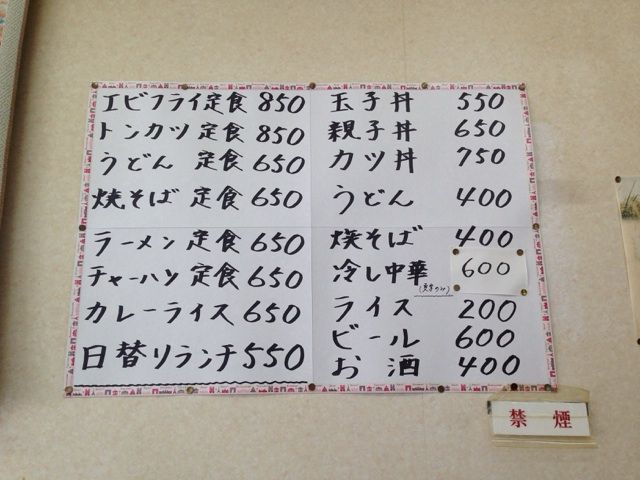 エビフライ定食 850
トンカツ定食 850
うどん 定食 650
焼そば 定食 650
ラーメン 定食 650
チャーハン 定食 650
カレーライス 650
日替りランチ 550
玉子丼 550
親子丼 650
カツ丼 750
うどん 400
焼そば 400
冷し中華 600
ライス 200
ビール 600
お酒 400
禁煙